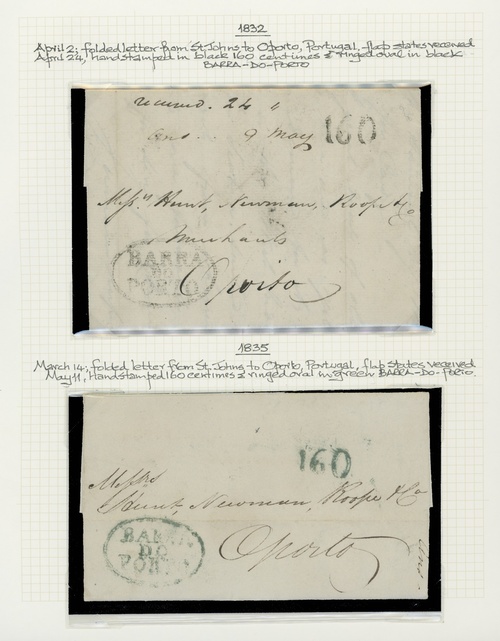 1832
April 2; folded letter from St Johns to Oporto, Portugal, flap states received
April 24, handstamped in black 160 centimes & ringed oval in black
BARRA-DO-PORTO
received. 24
9 May
160
Messrs Hunt, Newman, Roope & Co
Merchants
BARRA
DO
PORTO
Oporto
1835
March 14; folded letter from St. Johns to Oporto, Portugal, flap states received
May 11, Handstamped 160 centimes & ringed oval in green BARRA-DO-PORTO
160
Messrs
Hunt, Newman, Roope & Co
BARRA
DO
PORTO
Oporto